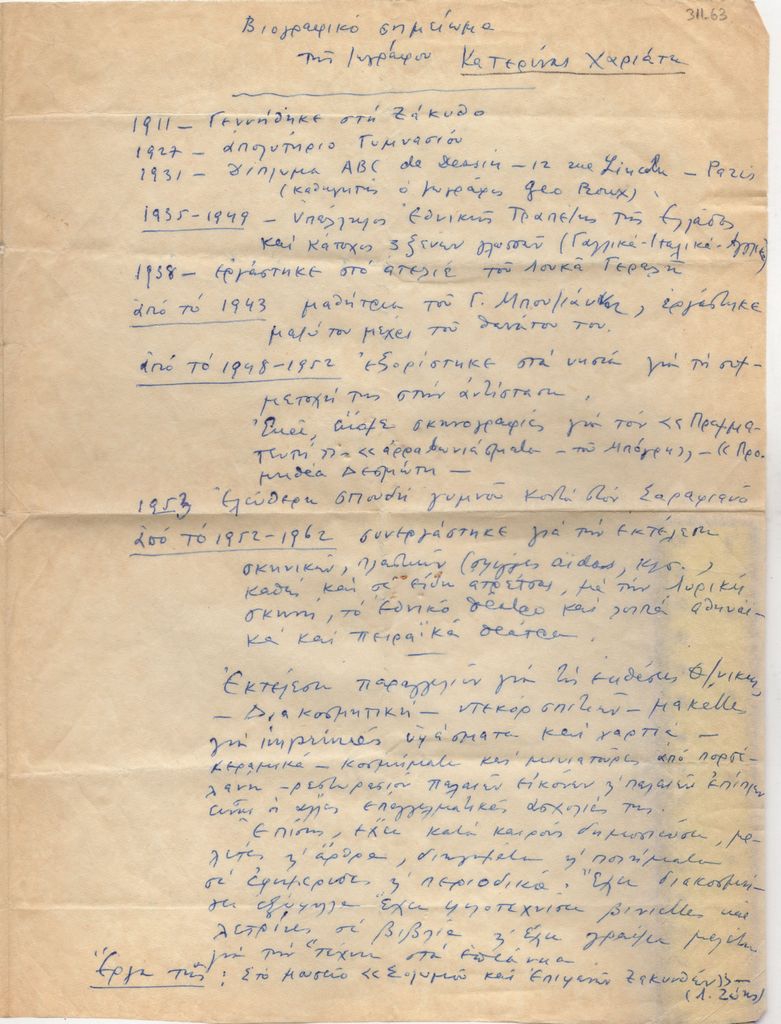 311.63
Βιογραφικό σημείωμα
της ζωγράφου Κατερίνας Χαριάτη
1911 – Γεννήθηκε στη Ζάκυθο
1927 – ἀπολυτήριο Γυμνασίου
1931 – Δίπλωμα ABC de Dessin – 12 rue Lincoln – Paris
(καθηγητής ὁ ζωγράφος Geo Roux).
1935-1949 – Ὑπάλληλος Ἐθνικῆς Τραπέζης τῆς Ελλάδος
καί κάτοχος 3 ξένων γλωσσῶν (Γαλλικά-Ιταλικά-Αγγλικά)
1938 – εργάστηκε στό ἀτελιέ τοῦ Λουκᾶ Γεραλῆ
ἀπό τό 1943 μαθήτρια τοῦ Γ. ἐργάστηκε
μαζύ του μέχρι τοῦ θανάτου του.
ἀπό τό 1948-1952 ἐξορίστηκε στά νησιά γιά τή συμ-
μετοχή της στήν ἀντίσταση.
Ἐκεῖ, σκηνογραφίες γιά τόν «Πραμμα-
τευτή – «ἀρραβωνιάσματα – τοῦ Μπόγρη» – «Προ-
μηθέα Δεσμώτη –
1953 Ἐλεύθερη σπουδή γυμνοῦ κοντά στόν Σαραφιανό
ἀπό τό 1952-1962 συνεργάστηκε γιά τήν εκτέλεση
σκηνικῶν, πλαστικῶν κλπ.,
καθώς καί σέ εἴδη ἀτρέτσας, μέ τήν Λυρική
σκηνή, τό ἐθνικό θέατρο καί λοιπά ἀθηναϊ-
κά καί πειραϊκά θέατρα.
Ἐκτέλεση παραγγελιῶν γιά τίς ἐκθέσεις Θ/νίκης
– Διακοσμητική – ντεκόρ σπιτιῶν – μακέττες
γιά ἰμπριμέ ὑφάσματα καί χαρτιά –
κεραμικά – κοσμήματα καί μινιατοῦρες ἀπό πορσε-
λάνη – ρεστωρασιόν παλαιῶν εἰκόνων ἤ παλαιῶν ἐπίπλων
εἶναι οἱ ἄλλες ἐπαγγελματικές ἀσχολίες της.
Ἐπίσης, ἔχει κατά καιρούς δημοσιεύσει, με-
λέτες ἤ ἄρθρα, διηγήματα ἤ ποιήματα
σέ ἐφημερίδες ἤ περιοδικά. Ἔχει διακοσμή-
σει ἐξώφυλλα Ἔχει φιλοτεχνήσει βινιέττες καί
σέ βιβλία ἤ ἔχει γράψει μελέτη
γιά τήν τέχνη στά Ἑπτάνησα
Ἔργα της: Στό μουσεῖο «Σολωμοῦ καί Επιφανῶν Ζακυνθίων» –
(Λ. Ζώης)